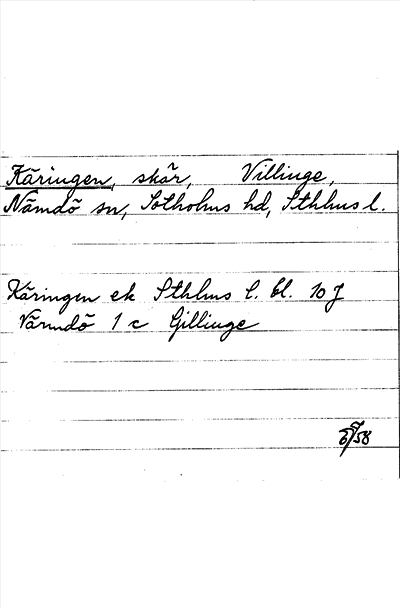 Käringen, skär, Villinge,
Nämdö sn, Sotholms hd, Sthlms l.
Käringen ek Sthlms l. bl. 10 J
Värmdö 1 c Gillinge
/58